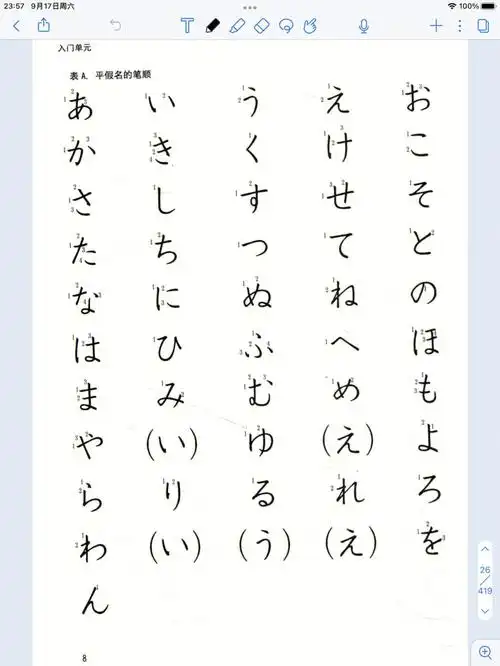 23:57 9月17日周六
100%
入门单元
表 A. 平假名的笔顺
あ い う え お
か き く け こ
さ し す せ そ
た ち つ て と
な に ぬ ね の
は ひ ふ へ ほ
ま み む め も
や (い) ゆ (え) よ
ら り る れ ろ
わ (い) (う) (え) を
ん
8
26
419